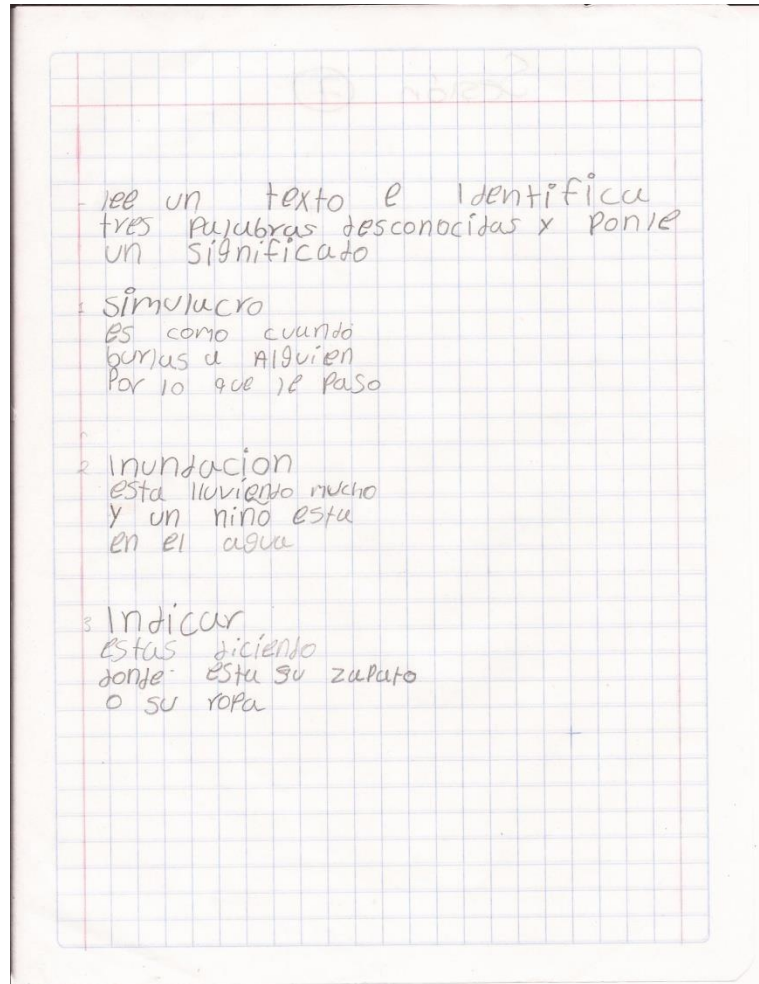 - lee un texto e Identifica
tres palabras desconocidas y ponle
un significado
1 simulacro
es como cuando
burlas a Alguien
Por lo que le paso
2 Inundacion
esta lluviendo mucho
y un niño esta
en el agua
3 Indicar
estas diciendo
donde esta su zapato
o su ropa